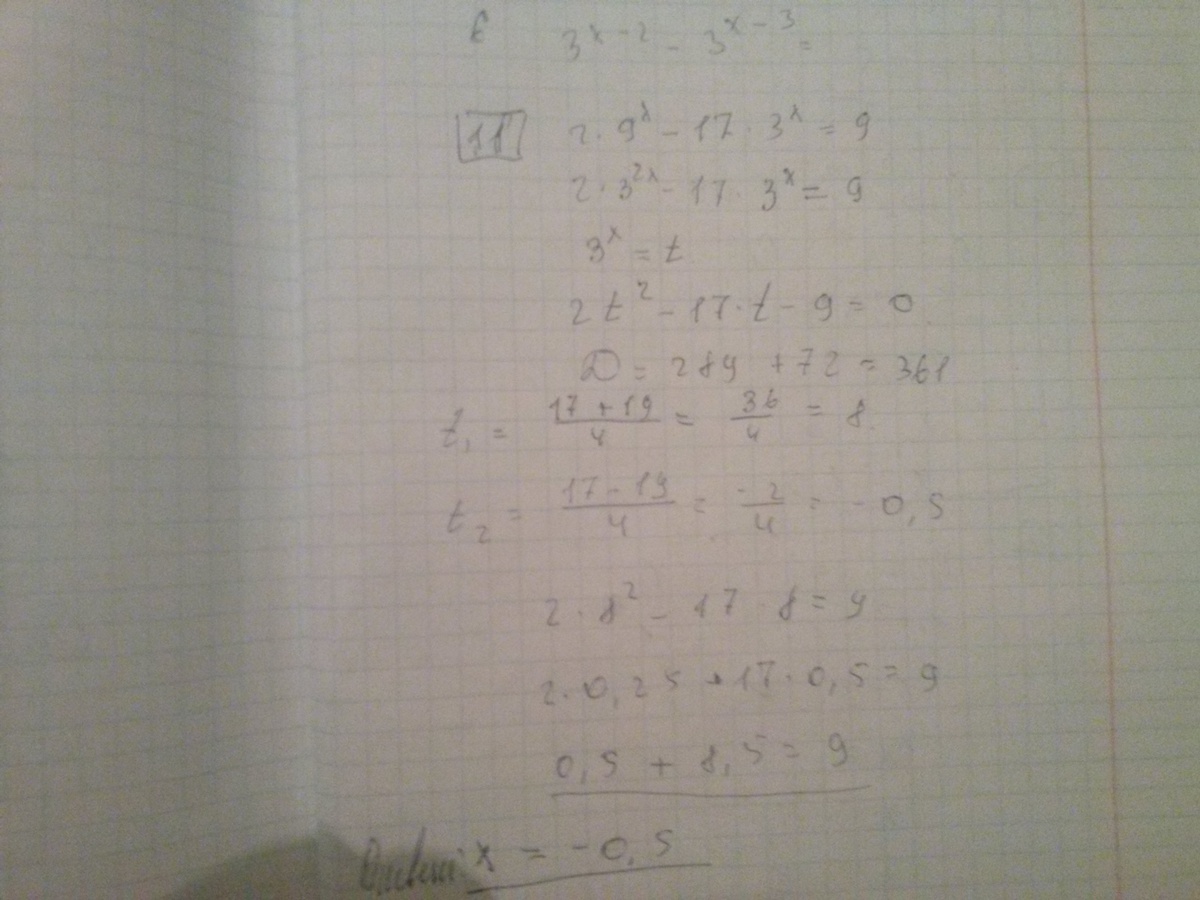 б 3^{x-2} - 3^{x-3} =
11 2·9^x - 17·3^x = 9
2·3^{2x} - 17·3^x = 9
3^x = t
2t^2 - 17·t - 9 = 0
D = 289 + 72 = 361
t_1 = \frac{17+19}{4} = \frac{36}{4} = 8.
t_2 = \frac{17-19}{4} = \frac{-2}{4} = -0,5
2·8^2 - 17·8 = 9
2·0,25 + 17·0,5 = 9
0,5 + 8,5 = 9
Ответ: x = -0,5